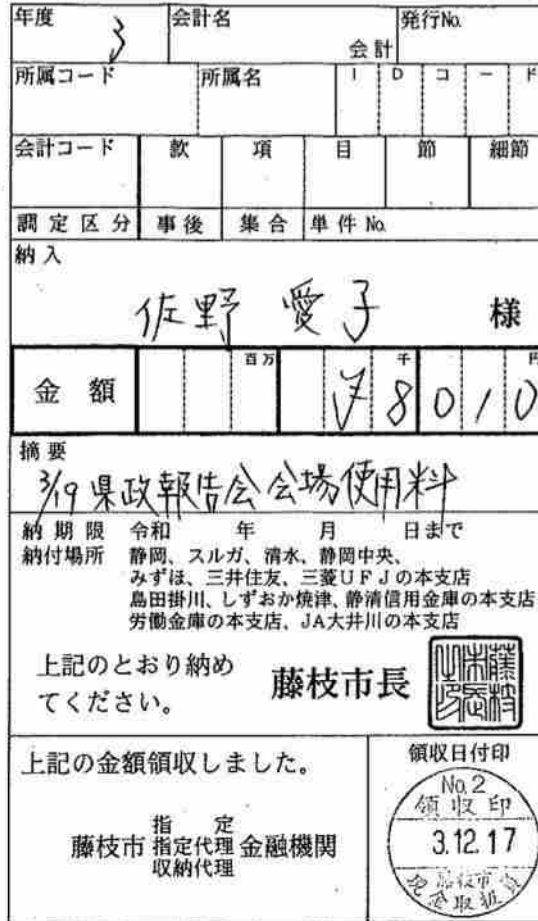 年度 3 会計名 会計 発行No.
所属コード 所属名 IDコード
会計コード 款 項 目 節 細節
調定区分 事後 集合 単件No.
納入
佐野 愛子 様
金額 百万 千 円
¥8010
摘要
3/19 県政報告会会場使用料
納期限 令和 年 月 日まで
納付場所 静岡、スルガ、清水、静岡中央、
みずほ、三井住友、三菱UFJの本支店
島田掛川、しずおか焼津、静清信用金庫の本支店
労働金庫の本支店、JA大井川の本支店
上記のとおり納め
てください。
藤枝市長
藤枝市長之印
上記の金額領収しました。
領収日付印
藤枝市 指定 指定代理 収納代理 金融機関
No.2
領収印
3.12.17
藤枝市
現金取扱員